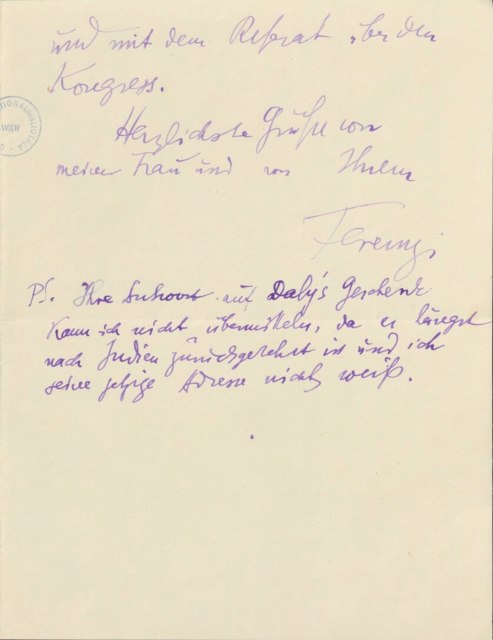 und mit dem Referat über den
Kongress.
Herzlichste Grüße von
meiner Frau und von Ihrem
Ferenczi
PS. Ihre Antwort auf Daly's Geschenk
kann ich nicht übermitteln, da er längst
nach Indien zurückgekehrt ist und ich
seine jetzige Adresse nicht weiß.
NATIONALBIBLIOTHEK
WIEN